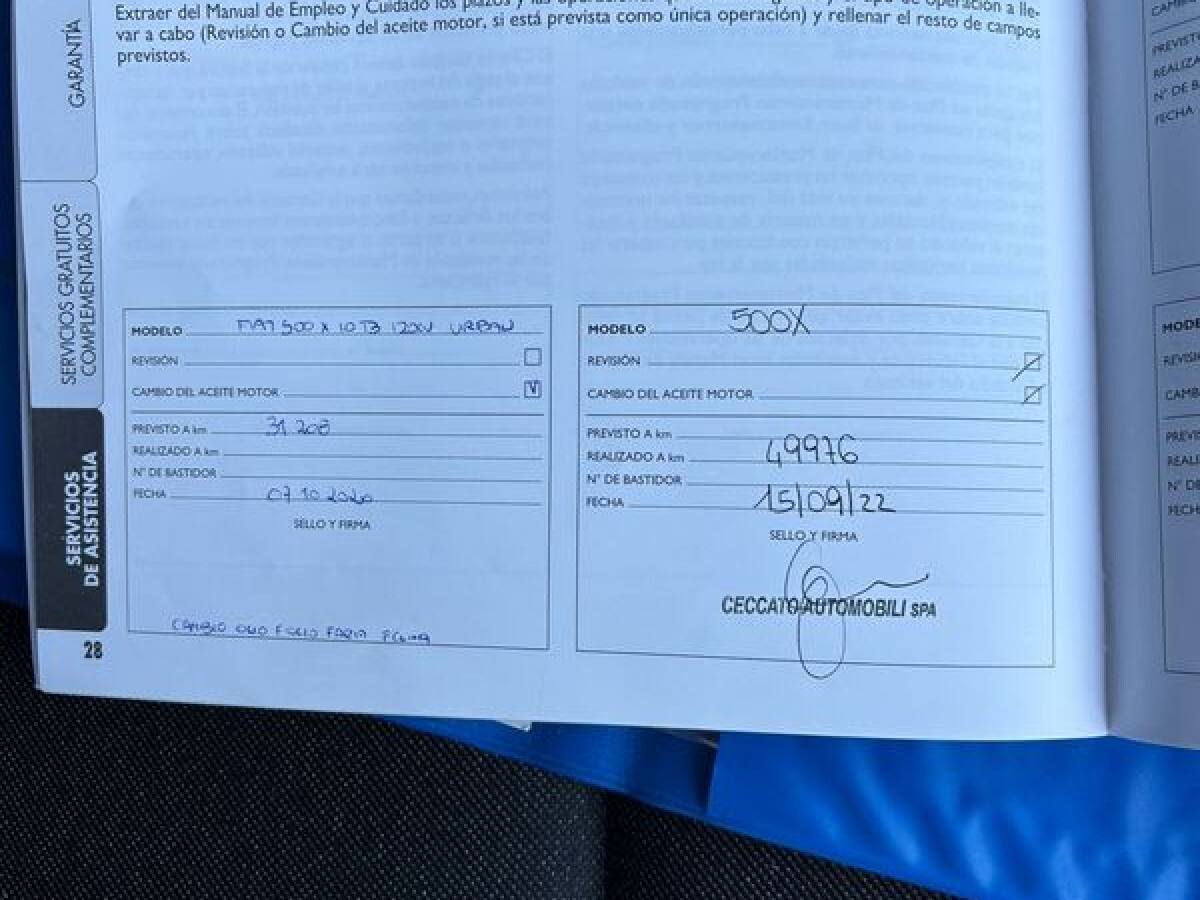 Extraer del Manual de Empleo y Cuidado los plazos y las operación a lle-
var a cabo (Revisión o Cambio del aceite motor, si está prevista como única operación) y rellenar el resto de campos
previstos.
GARANTÍA
SERVICIOS GRATUITOS
COMPLEMENTARIOS
SERVICIOS
DE ASISTENCIA
28
MODELO FIAT 500 X 10 T3 120CV URBAN
REVISIÓN
CAMBIO DEL ACEITE MOTOR V
PREVISTO A km 31 208
REALIZADO A km
N° DE BASTIDOR
FECHA 07 10 2020
SELLO Y FIRMA
CAMBIO OLIO
MODELO 500X
REVISIÓN
CAMBIO DEL ACEITE MOTOR
PREVISTO A km
REALIZADO A km 49976
N° DE BASTIDOR
FECHA 15/09/22
SELLO Y FIRMA
CECCATO AUTOMOBILI SPA
PREVISTO
REALIZA
N° DE B
FECHA
MODE
REVISI
CAMB
PREVIS
REALI
N° DE
FECH